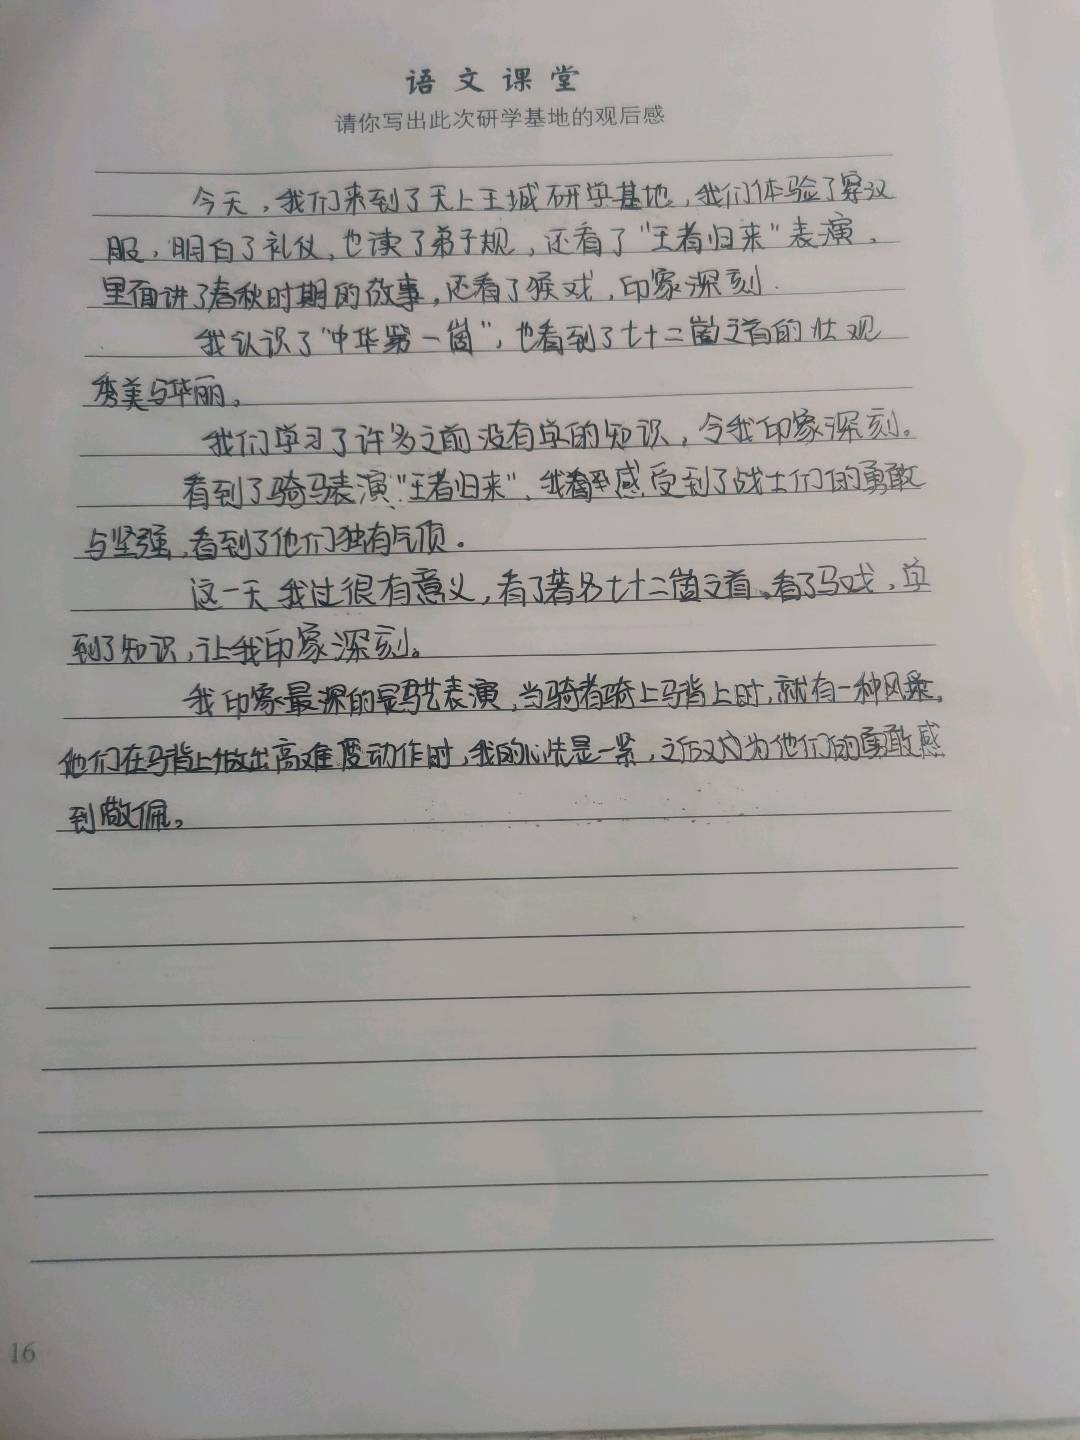 语文课堂
请你写出此次研学基地的观后感
今天，我们来到了天上王城研学基地，我们体验了穿汉
服，明白了礼仪，也读了弟子规，还看了“王者归来”表演，
里面讲了春秋时期的故事，还看了猴戏，印象深刻.
我认识了“中华第一崮”，也看到了七十二崮之首的壮观
秀美与华丽。
我们学习了许多之前没有学的知识，令我印象深刻。
看到了骑马表演“王者归来”，我感受到了战士们的勇敢
与坚强，看到了他们独有气质。
这一天我过很有意义，看了著名七十二崮之首、看了马戏，学
到了知识，让我印象深刻。
我印象最深的是马艺表演，当骑者骑上马背上时，就有一种风采。
他们在马背上做出高难度动作时，我的心先是一紧，之后又为他们的勇敢感
到敬佩。
16